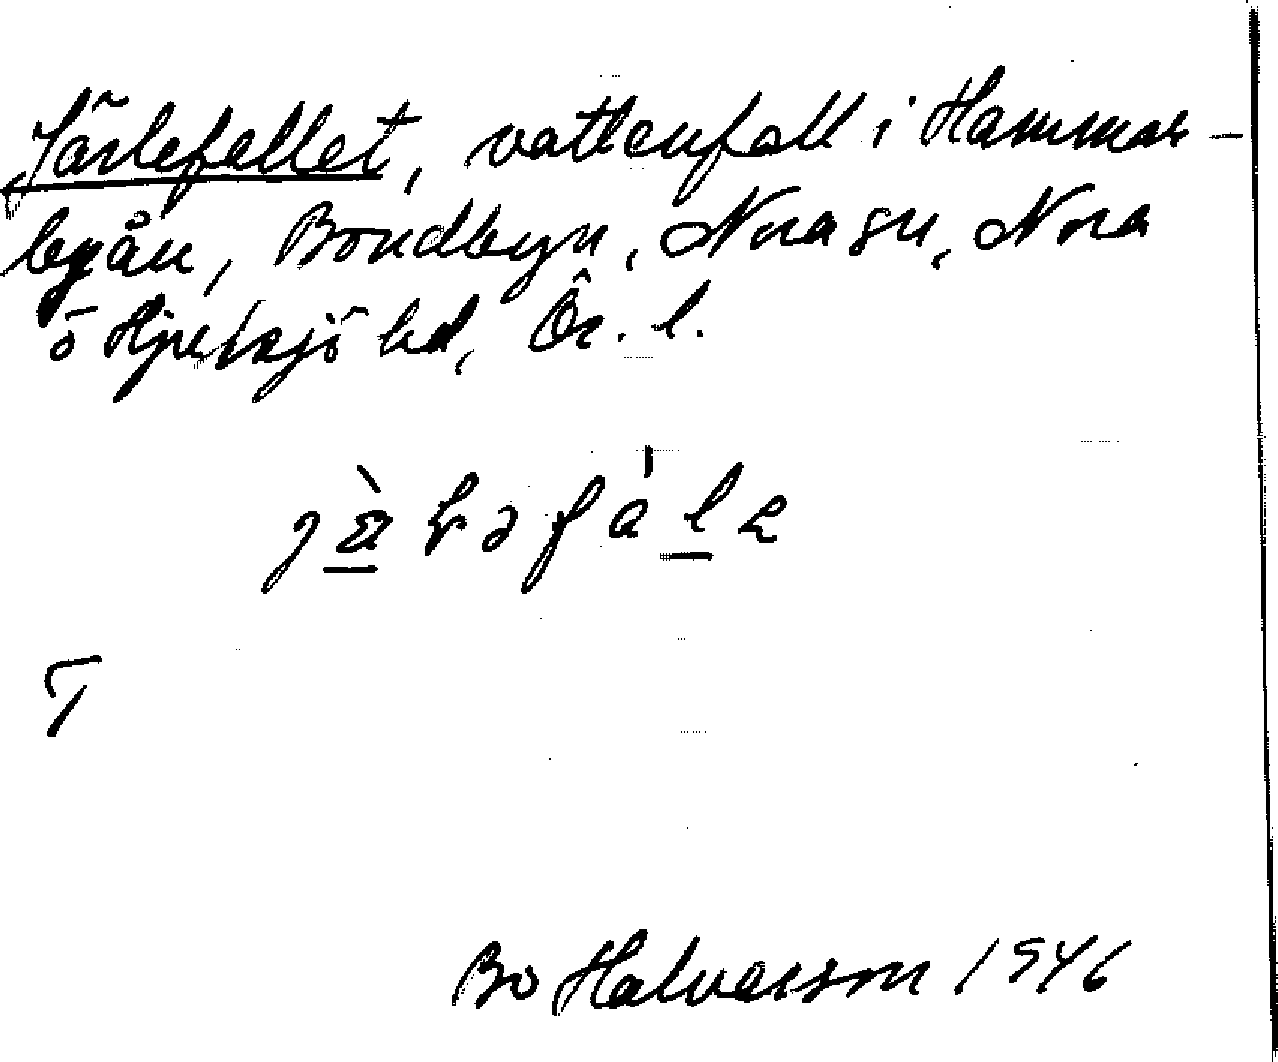 Järlefallet, vattenfall i Hammar-
byån, Bondbyn, Nora sn, Nora
o Hjulsjö hd, Ör. l.
T
Bo Halvarsson 1946